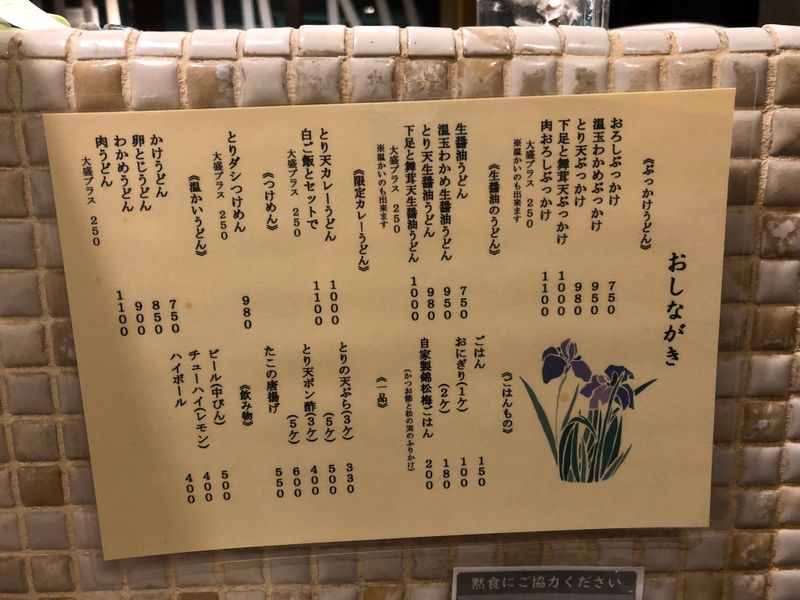 おしながき
《ぶっかけうどん》
おろしぶっかけ 750
温玉わかめぶっかけ 950
とり天ぶっかけ 980
下足と舞茸天ぶっかけ 1000
肉おろしぶっかけ 1100
大盛プラス 250
※温かいのも出来ます
《生醤油のうどん》
生醤油うどん 750
温玉わかめ生醤油うどん 950
とり天生醤油うどん 980
下足と舞茸天生醤油うどん 1000
大盛プラス 250
※温かいのも出来ます
《限定カレーうどん》
とり天カレーうどん 1000
白ご飯とセットで 1100
大盛プラス 250
《つけめん》
とりダシつけめん 980
大盛プラス 250
《温かいうどん》
かけうどん 750
卵とじうどん 850
わかめうどん 900
肉うどん 1100
大盛プラス 250
《ごはんもの》
ごはん 150
おにぎり(1ケ) 100
(2ケ) 180
自家製錦松梅ごはん 200
(かつお節と松の実のふりかけ)
《一品》
とりの天ぷら(3ケ) 330
(5ケ) 500
とり天ポン酢(3ケ) 400
(5ケ) 600
たこの唐揚げ 550
《飲み物》
ビール(中びん) 500
チューハイ(レモン) 400
ハイボール 400
黙食にご協力ください